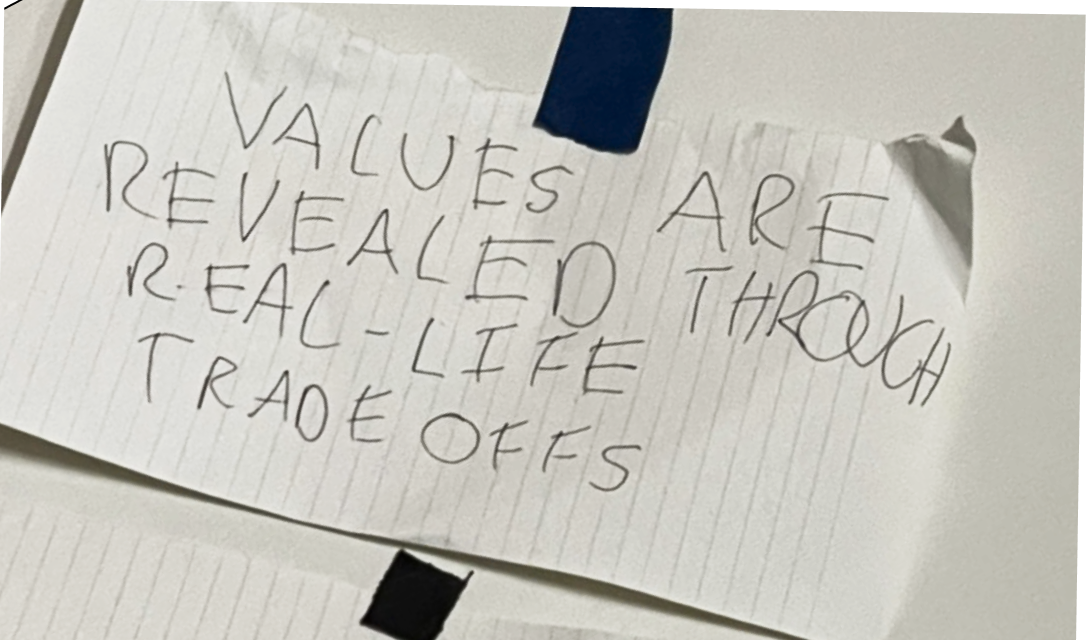 VALUES ARE
REVEALED THROUGH
REAL-LIFE
TRADE OFFS